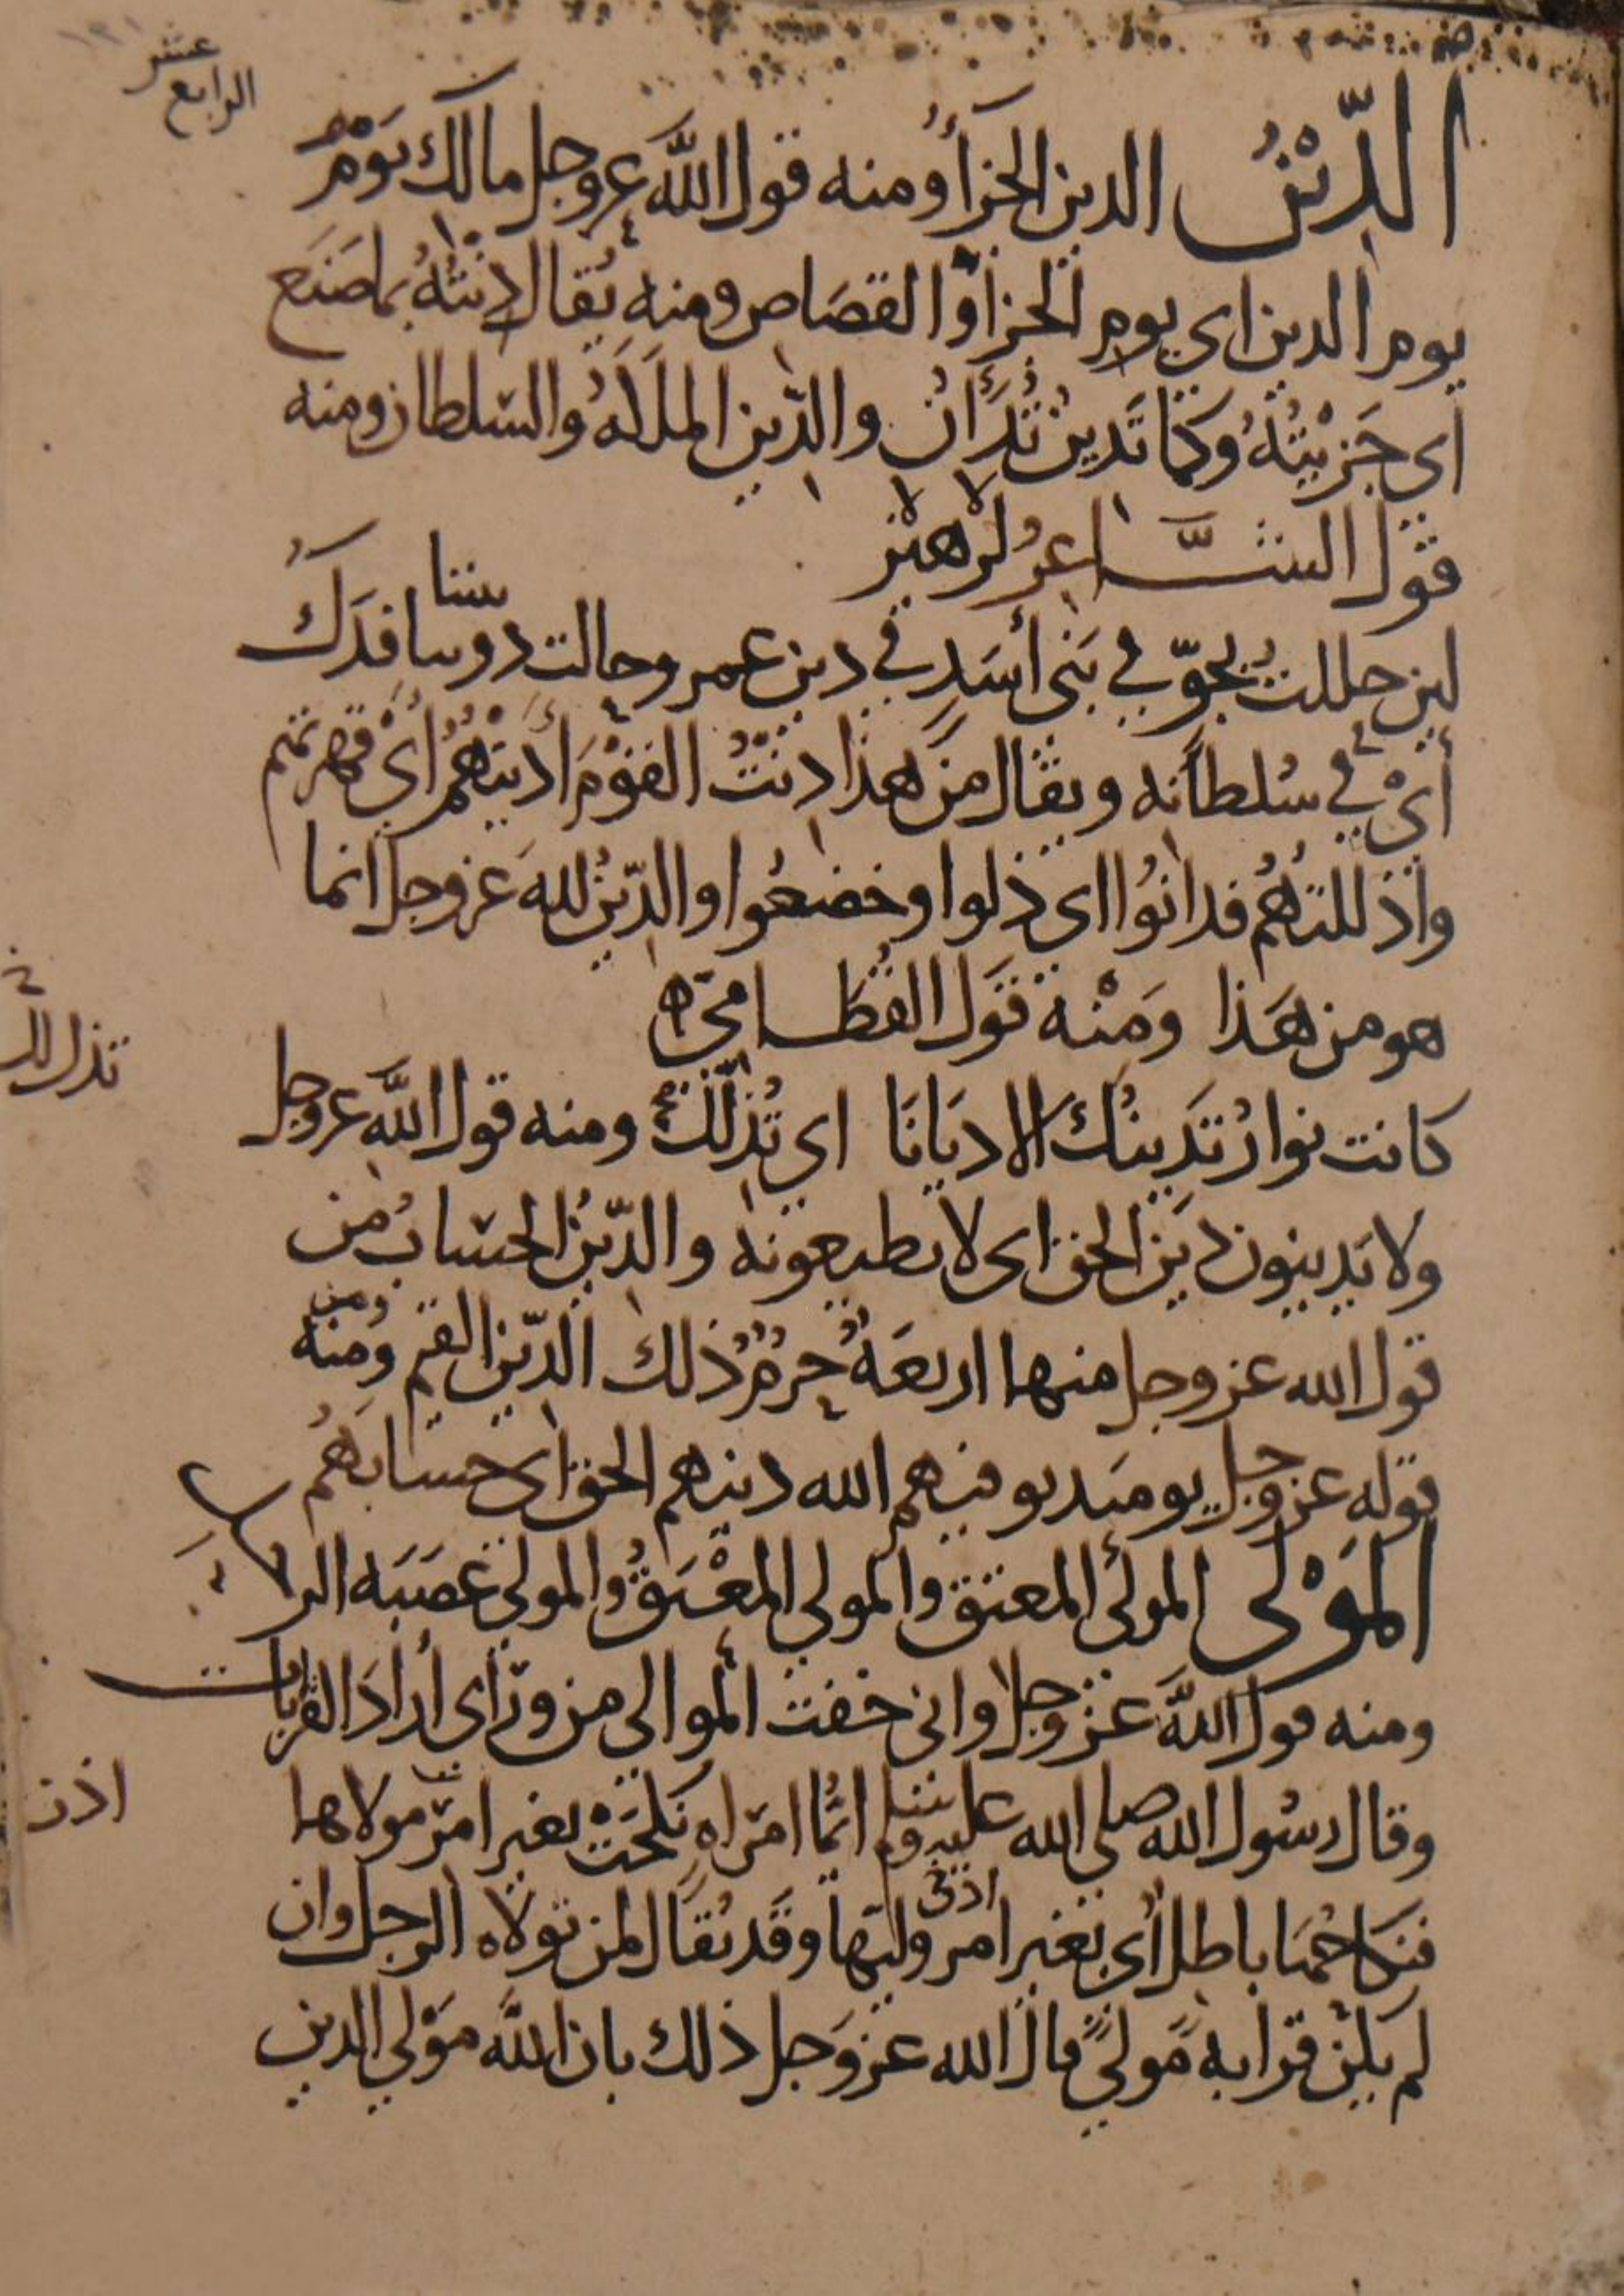 الرابع عشر
الدِّيْنُ الدين الجزآءُ ومنه قول اللَّه عز وجل مالك يَوْمِ
يوم الدين اى يوم الجزآء والقصَاص ومنه يُقال دِنْتُهُ بماصَنَع
اي جَزَيْتُهُ وَكمَا تَدِينُ تُدَانُ والدِّين المملكهُ والسّلطان ومنه
قول الشَّاعرُ زهيْر
لين حللتَ بجوّ في بَني أسَدٍ في دين عمرو وحالت دوننا فدَكُ
بيننا
أىْ في سُلطانه ويقال مِن هذا دِنْتُ القوْمَ أدِينهُمْ أىْ قهرتهم
واذللتهُم فدانُوُا اى ذلوا وخضعُوا والدِّينُ لله عز وجل انما
هو من هَذا وَمنْهُ قوَل القُطَامىّ ه
كانت نوارُ تَدِينُكَ الاديَانَا اي تُذِلُّكَ ومنه قول اللَّه عز وجل
تذلل
ولا يَدِينون دِينَ الحق اى لا يطيعونه والدِّينُ الحسَابُ من
قول الله عز وجل منها اربعَةٌ حُرُمٌ ذلك الدّين القيم ومنهُ
ومن
قوله عز وجل يوميذ يوفيهم الله دينهم الحق اى حسَابَهُم
المَوْلَى المولَى المعتِق والمولي المعْتَقُ والمولي عَصَبَه الرجل
ومنه قول اللَّه عز وجل واني خفت الموالى من ورآى أرادَ القرابات
وقال رسُول الله صلى الله عليه وسلم ايّما امرَاهٍ نكحَتْ بغير امر مولاها
اذن
فنكاحُهَا باطل أى بغير امر وليّها وقَد يُقَال لمن تولاه الرجل وان
اذن
لم يكن قرابه مَولىً قال الله عز وَجل ذلك بان اللَّه مَوْلي الذين